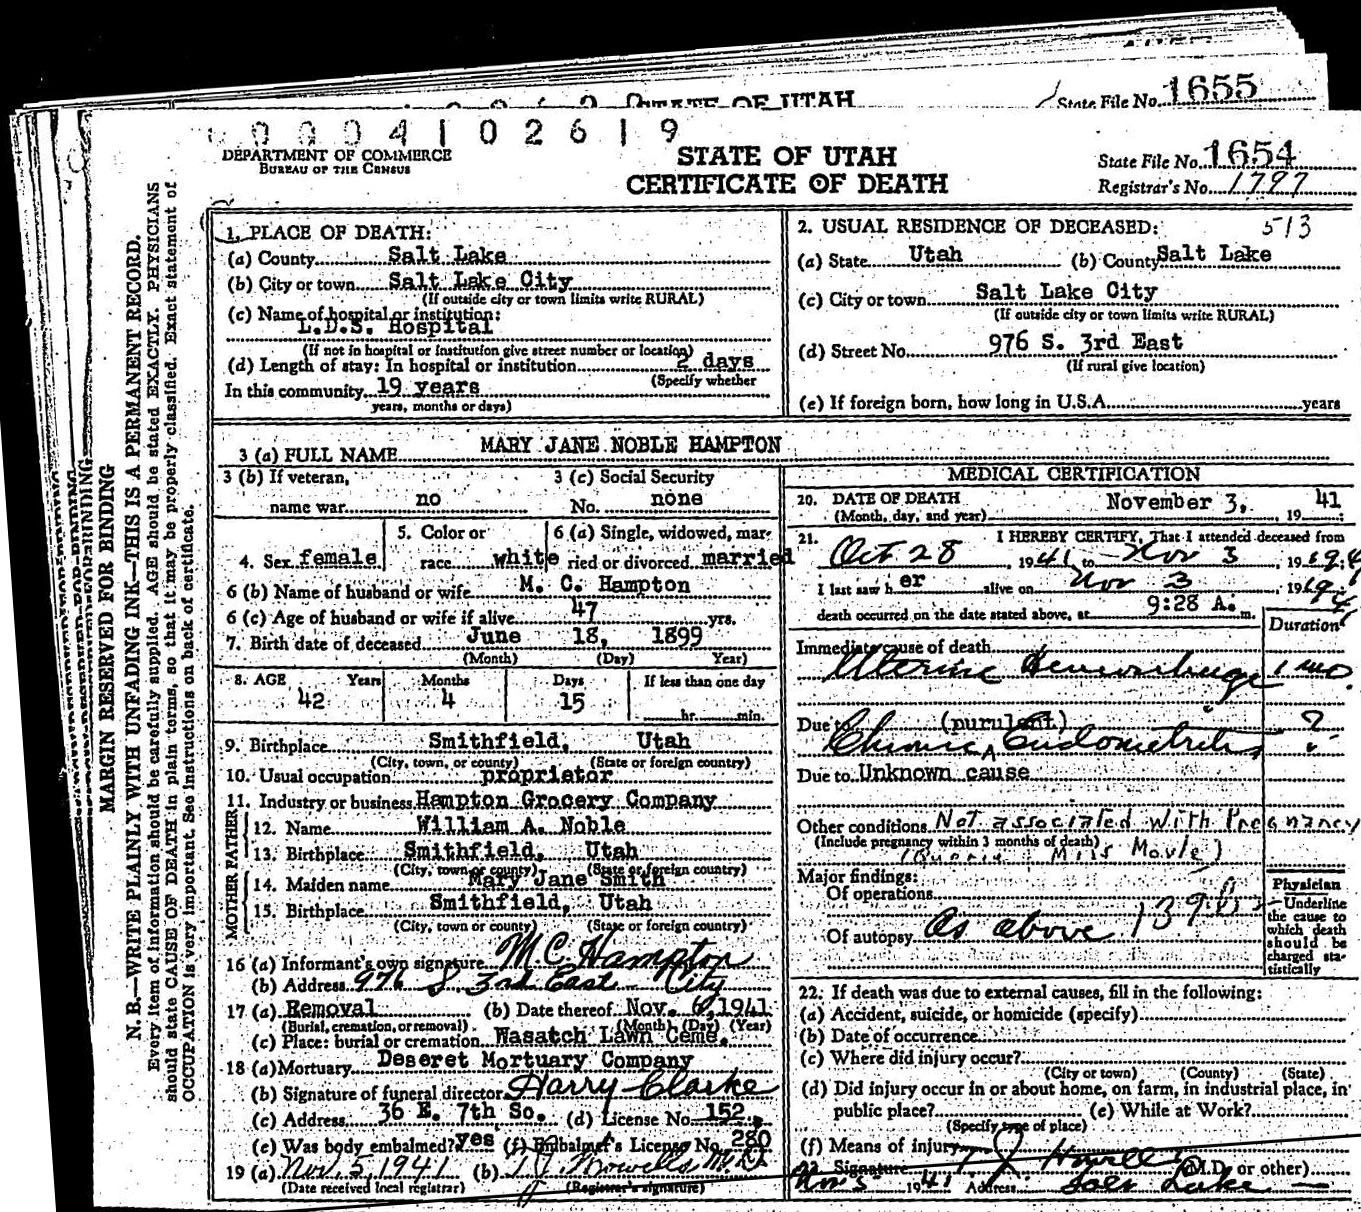 STATE OF UTAH
State File No. 1655
0004102619
DEPARTMENT OF COMMERCE
BUREAU OF THE CENSUS
STATE OF UTAH
CERTIFICATE OF DEATH
State File No. 1654
Registrar's No. 1797
MARGIN RESERVED FOR BINDING
N. B.—WRITE PLAINLY WITH UNFADING INK—THIS IS A PERMANENT RECORD.
Every item of information should be carefully supplied. AGE should be stated EXACTLY. PHYSICIANS
should state CAUSE OF DEATH in plain terms, so that it may be properly classified. Exact statement of
OCCUPATION is very important. See instructions on back of certificate.
1. PLACE OF DEATH:
(a) County Salt Lake
(b) City or town Salt Lake City
(If outside city or town limits write RURAL)
(c) Name of hospital or institution:
L.D.S. Hospital
(If not in hospital or institution give street number or location)
(d) Length of stay: In hospital or institution 2 days
(Specify whether
In this community 19 years
years, months or days)
2. USUAL RESIDENCE OF DECEASED: 513
(a) State Utah (b) County Salt Lake
(c) City or town Salt Lake City
(If outside city or town limits write RURAL)
(d) Street No. 976 S. 3rd East
(If rural give location)
(e) If foreign born, how long in U.S.A. years
3 (a) FULL NAME MARY JANE NOBLE HAMPTON
3 (b) If veteran,
name war no
3 (c) Social Security
No. none
4. Sex female
5. Color or
race white
6 (a) Single, widowed, mar-
ried or divorced married
6 (b) Name of husband or wife M. C. Hampton
6 (c) Age of husband or wife if alive 47 yrs.
7. Birth date of deceased June 18, 1899
(Month) (Day) Year)
8. AGE Years Months Days If less than one day
42 4 15 hr. min.
9. Birthplace Smithfield, Utah
(City, town, or county) (State or foreign country)
10. Usual occupation proprietor
11. Industry or business Hampton Grocery Company
FATHER
12. Name William A. Noble
13. Birthplace Smithfield, Utah
(City, town or county) (State or foreign country)
MOTHER
14. Maiden name Mary Jane Smith
15. Birthplace Smithfield, Utah
(City, town or county) (State or foreign country)
16 (a) Informant's own signature M C Hampton
(b) Address 976 S 3rd East City
17 (a) Removal (b) Date thereof Nov. 6, 1941
(Burial, cremation, or removal) (Month) (Day) (Year)
(c) Place: burial or cremation Wasatch Lawn Ceme.
18 (a) Mortuary Deseret Mortuary Company
(b) Signature of funeral director Harry Clarke
(c) Address 36 E. 7th So. (d) License No. 152
(e) Was body embalmed? yes (f) Embalmer's License No. 280
19 (a) Nov. 5, 1941 (b) T J Howells M.D.
(Date received local registrar) (Registrar's signature)
MEDICAL CERTIFICATION
20. DATE OF DEATH
(Month, day, and year) November 3, 1941
21. I HEREBY CERTIFY, That I attended deceased from
Oct 28, 1941 to Nov 3, 19
I last saw her alive on Nov 3, 19
death occurred on the date stated above, at 9:28 A. m.
Duration
Immediate cause of death
Uterine Hemorrhage 1 mo.
Due to (purulent) ?
Chronic Endometritis
Due to Unknown cause
Other conditions Not associated with Pregnancy
(Include pregnancy within 3 months of death)
Major findings:
Of operations
Of autopsy As above
Physician
Underline
the cause to
which death
should be
charged sta-
tistically
22. If death was due to external causes, fill in the following:
(a) Accident, suicide, or homicide (specify)
(b) Date of occurrence
(c) Where did injury occur?
(City or town) (County) (State)
(d) Did injury occur in or about home, on farm, in industrial place, in
public place? (e) While at Work?
(Specify type of place)
(f) Means of injury
23. Signature T J Howells (M.D. or other)
Nov 5 1941 Address Salt Lake